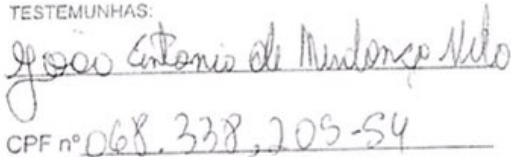 TESTEMUNHAS:
João Antonio de Mendonça Nelo
CPF nº 068.338.205-54